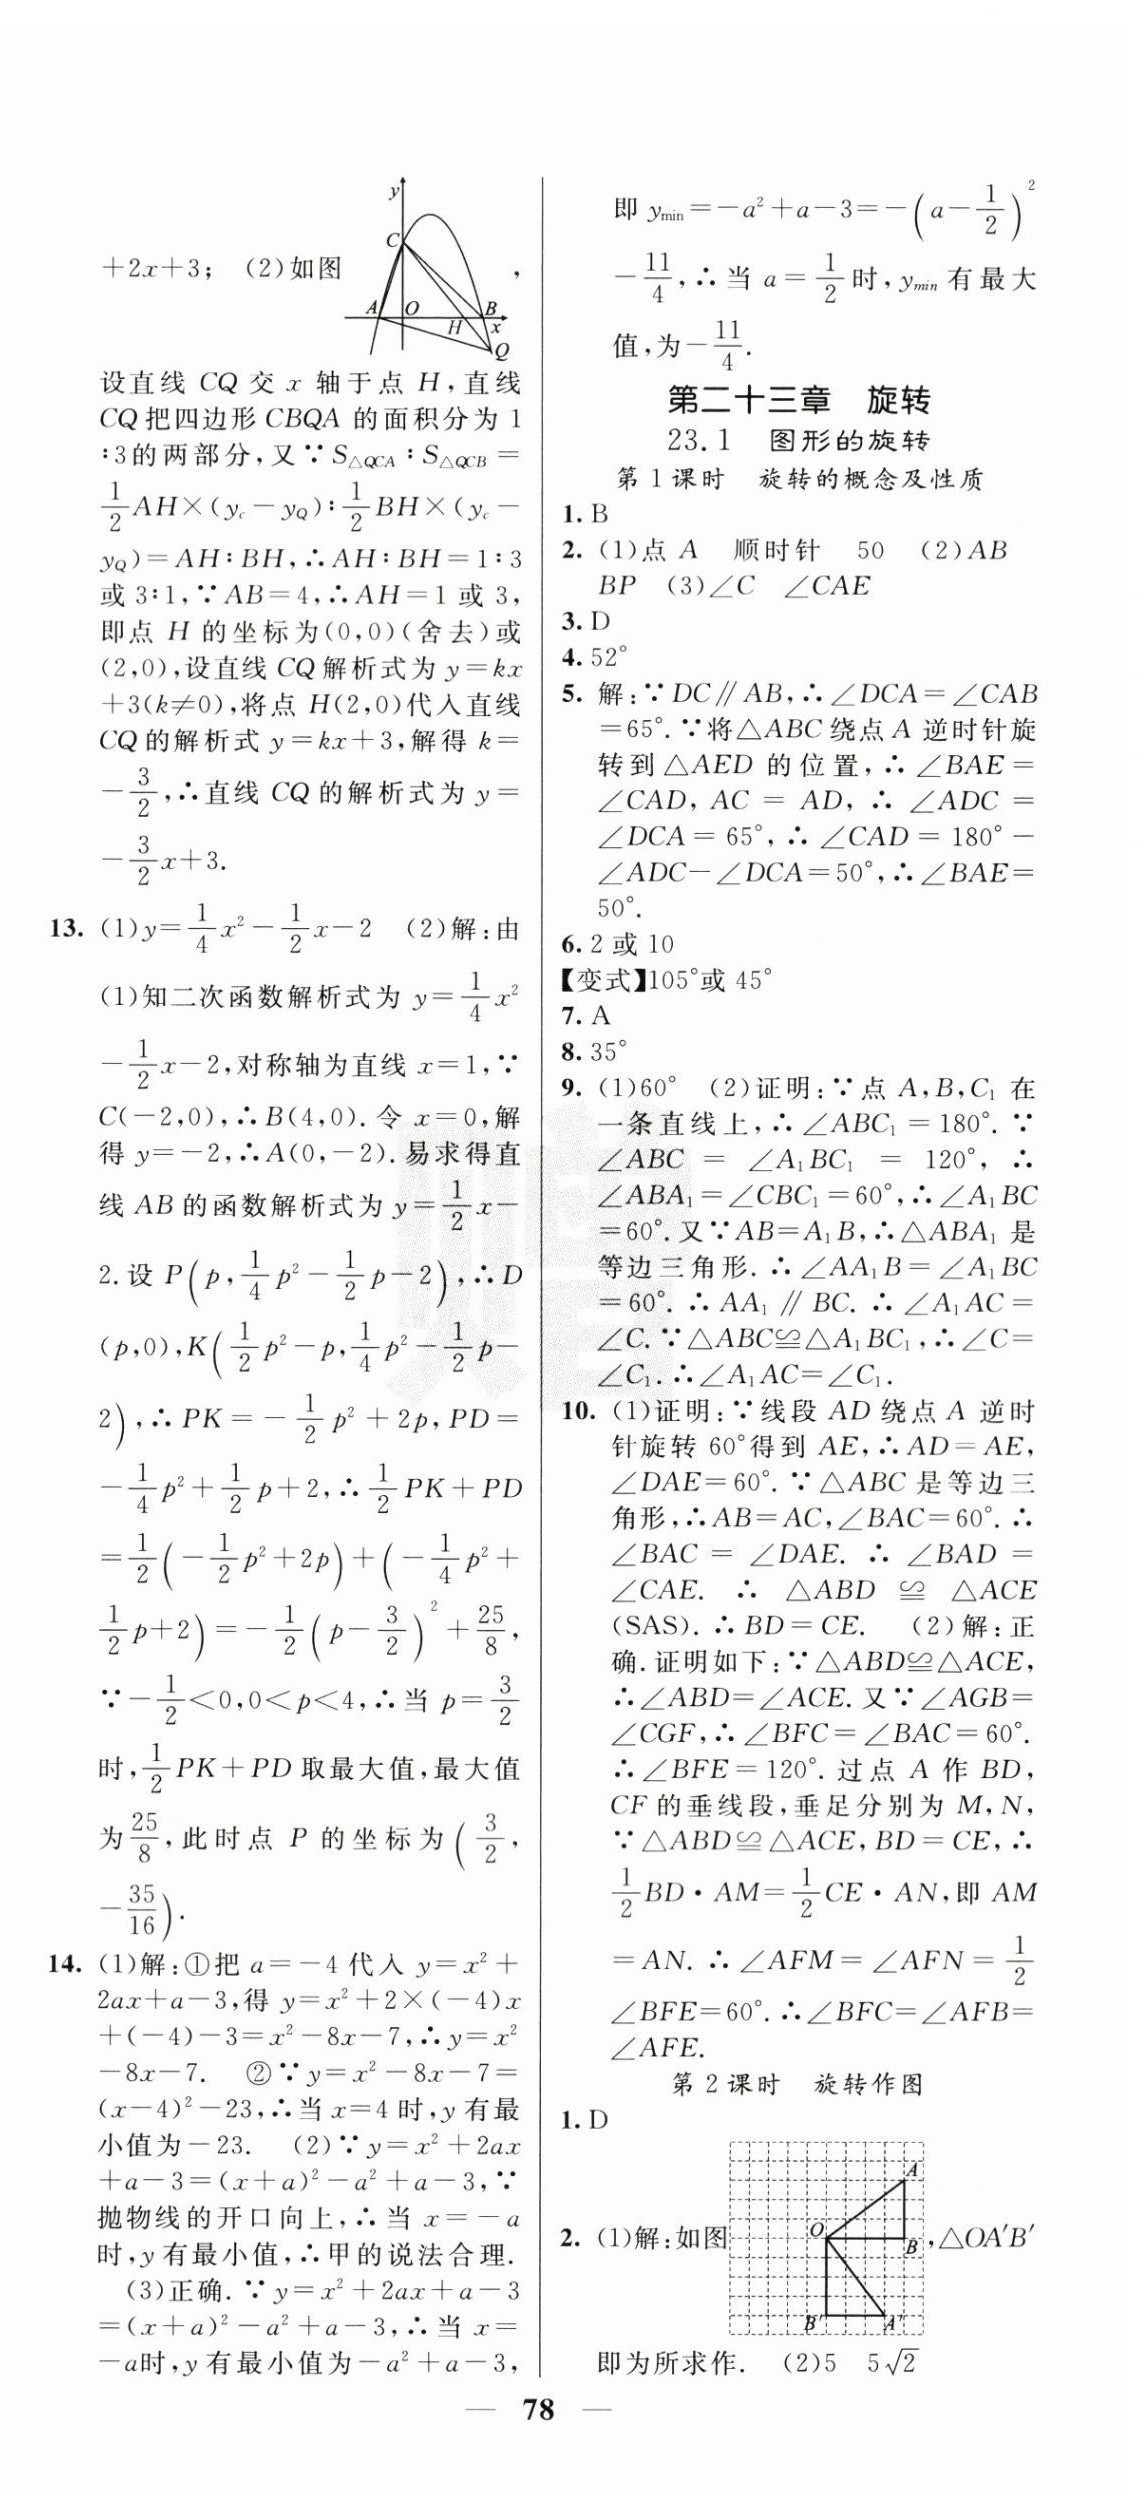 +2x+3; (2)如图
y
C
A O H B x
Q
,
设直线 CQ 交 x 轴于点 H,直线
CQ 把四边形 CBQA 的面积分为 1
:3的两部分,又∵S△QCA:S△QCB=
1/2 AH×(yc-yQ):1/2 BH×(yc-
yQ)=AH:BH,∴AH:BH=1:3
或 3:1,∵AB=4,∴AH=1 或 3,
即点 H 的坐标为(0,0)(舍去)或
(2,0),设直线 CQ 解析式为 y=kx
+3(k≠0),将点 H(2,0)代入直线
CQ 的解析式 y=kx+3,解得 k=
-3/2,∴直线 CQ 的解析式为 y=
-3/2 x+3.
13. (1)y=1/4 x²-1/2 x-2 (2)解:由
(1)知二次函数解析式为 y=1/4 x²
-1/2 x-2,对称轴为直线 x=1,∵
C(-2,0),∴B(4,0).令 x=0,解
得 y=-2,∴A(0,-2).易求得直
线 AB 的函数解析式为 y=1/2 x-
2.设 P(p,1/4 p²-1/2 p-2),∴D
(p,0),K(1/2 p²-p,1/4 p²-1/2 p-
2),∴PK=-1/2 p²+2p,PD=
-1/4 p²+1/2 p+2,∴1/2 PK+PD
=1/2(-1/2 p²+2p)+(-1/4 p²+
1/2 p+2)=-1/2(p-3/2)²+25/8,
∵-1/2<0,0<p<4,∴当 p=3/2
时,1/2 PK+PD 取最大值,最大值
为25/8,此时点 P 的坐标为(3/2,
-35/16).
14. (1)解:①把 a=-4 代入 y=x²+
2ax+a-3,得 y=x²+2×(-4)x
+(-4)-3=x²-8x-7,∴y=x²
-8x-7. ②∵y=x²-8x-7=
(x-4)²-23,∴当 x=4 时,y 有最
小值为-23. (2)∵y=x²+2ax
+a-3=(x+a)²-a²+a-3,∵
抛物线的开口向上,∴当 x=-a
时,y 有最小值,∴甲的说法合理.
(3)正确.∵y=x²+2ax+a-3
=(x+a)²-a²+a-3,∴当 x=
-a时,y 有最小值为-a²+a-3,
即 ymin=-a²+a-3=-(a-1/2)²
-11/4,∴当 a=1/2时,ymin 有最大
值,为-11/4.
第二十三章 旋转
23.1 图形的旋转
第 1 课时 旋转的概念及性质
1. B
2. (1)点 A 顺时针 50 (2)AB
BP (3)∠C ∠CAE
3. D
4. 52°
5. 解:∵DC∥AB,∴∠DCA=∠CAB
=65°.∵将△ABC 绕点 A 逆时针旋
转到△AED 的位置,∴∠BAE=
∠CAD,AC=AD,∴∠ADC=
∠DCA=65°,∴∠CAD=180°-
∠ADC-∠DCA=50°,∴∠BAE=
50°.
6. 2 或 10
【变式】105°或 45°
7. A
8. 35°
9. (1)60° (2)证明:∵点 A,B,C₁ 在
一条直线上,∴∠ABC₁=180°.∵
∠ABC=∠A₁BC₁=120°,∴
∠ABA₁=∠CBC₁=60°,∴∠A₁BC
=60°.又∵AB=A₁B,∴△ABA₁ 是
等边三角形.∴∠AA₁B=∠A₁BC
=60°.∴AA₁∥BC.∴∠A₁AC=
∠C.∵△ABC≌△A₁BC₁,∴∠C=
∠C₁.∴∠A₁AC=∠C₁.
10. (1)证明:∵线段 AD 绕点 A 逆时
针旋转 60°得到 AE,∴AD=AE,
∠DAE=60°.∵△ABC 是等边三
角形,∴AB=AC,∠BAC=60°.∴
∠BAC=∠DAE.∴∠BAD=
∠CAE.∴△ABD≌△ACE
(SAS).∴BD=CE. (2)解:正
确.证明如下:∵△ABD≌△ACE,
∴∠ABD=∠ACE.又∵∠AGB=
∠CGF,∴∠BFC=∠BAC=60°.
∴∠BFE=120°.过点 A 作 BD,
CF 的垂线段,垂足分别为 M,N,
∵△ABD≌△ACE,BD=CE,∴
1/2 BD·AM=1/2 CE·AN,即 AM
=AN.∴∠AFM=∠AFN=1/2
∠BFE=60°.∴∠BFC=∠AFB=
∠AFE.
第 2 课时 旋转作图
1. D
A
O B
B′ A′
2. (1)解:如图,△OA′B′
即为所求作. (2)5 5√2
78